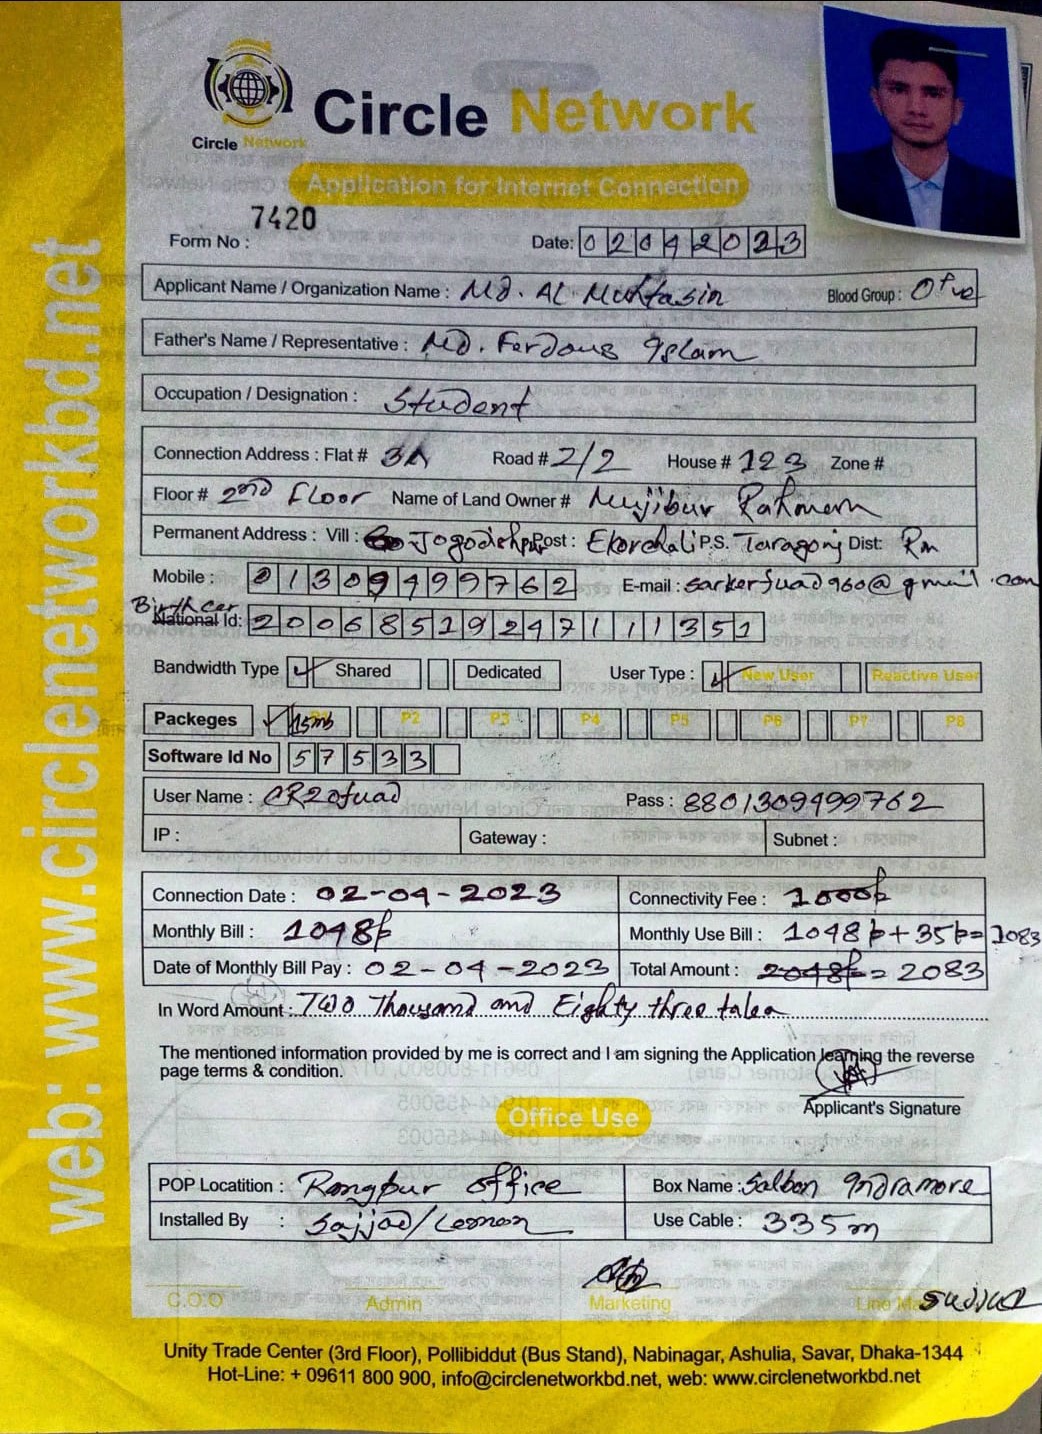 Circle Network
Circle Network
Application for Internet Connection
7420
Form No :
Date: 02042023
Applicant Name / Organization Name : Md. AL Muhtasin Blood Group : O+ve
Father's Name / Representative : Md. Ferdous Islam
Occupation / Designation : Student
Connection Address : Flat # 3A Road # 2/2 House # 123 Zone #
Floor # 2nd Floor Name of Land Owner # Mujibur Rahman
Permanent Address : Vill : Jogodishpur Post : Ekorchali P.S. Taragonj Dist:
Mobile : 01309499762 E-mail : sarkerfuad960@gmail.com
Birth cer
National Id: 20068519247111351
Bandwidth Type Shared Dedicated User Type : New User Reactive User
Packeges 15mb P2 P3 P4 P5 P6 P7 P8
Software Id No 57533
User Name : CR20fuad Pass : 8801309499762
IP : Gateway : Subnet :
Connection Date : 02-04-2023 Connectivity Fee : 1000৳
Monthly Bill : 1048৳ Monthly Use Bill : 1048৳+35৳=1083
Date of Monthly Bill Pay : 02-04-2023 Total Amount : 2048৳ = 2083
In Word Amount : Two Thousand and Eighty three taka
The mentioned information provided by me is correct and I am signing the Application learning the reverse
page terms & condition.
Applicant's Signature
Office Use
POP Locatition : Rongpur office Box Name : Salbon Indramore
Installed By : Sajjad/Lemon Use Cable : 335m
C.O.O Admin Marketing Line
Unity Trade Center (3rd Floor), Pollibiddut (Bus Stand), Nabinagar, Ashulia, Savar, Dhaka-1344
Hot-Line: + 09611 800 900, info@circlenetworkbd.net, web: www.circlenetworkbd.net
web: www.circlenetworkbd.net